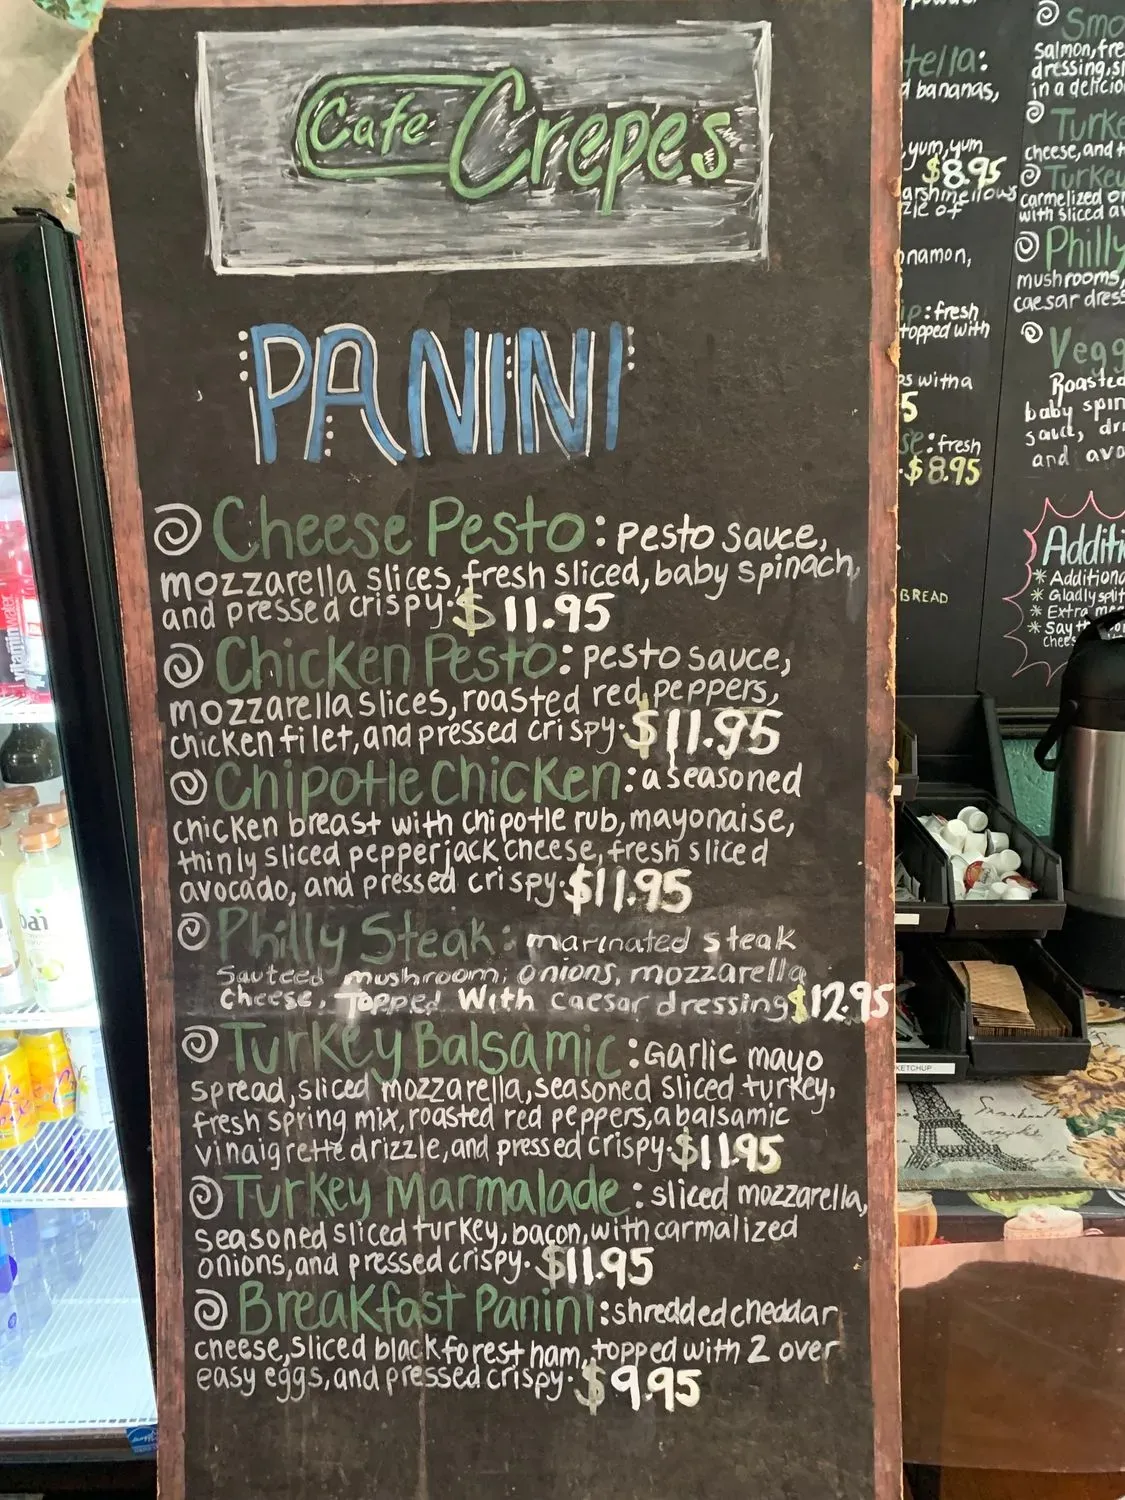 Cafe Crepes
PANINI
Cheese Pesto: pesto sauce,
mozzarella slices, fresh sliced, baby spinach,
and pressed crispy. $11.95
Chicken Pesto: pesto sauce,
mozzarella slices, roasted red peppers,
chicken filet, and pressed crispy. $11.95
Chipotle Chicken: a seasoned
chicken breast with chipotle rub, mayonaise,
thinly sliced pepperjack cheese, fresh sliced
avocado, and pressed crispy. $11.95
Philly Steak: marinated steak
sauteed mushroom, onions, mozzarella
cheese, Topped With caesar dressing $12.95
Turkey Balsamic: Garlic mayo
spread, sliced mozzarella, seasoned sliced turkey,
fresh spring mix, roasted red peppers, a balsamic
vinaigrette drizzle, and pressed crispy. $11.95
Turkey Marmalade: sliced mozzarella,
seasoned sliced turkey, bacon, with carmalized
onions, and pressed crispy. $11.95
Breakfast Panini: shredded cheddar
cheese, sliced black forest ham, topped with 2 over
easy eggs, and pressed crispy. $9.95
tella:
bananas,
yum, yum
$8.95
arshmellows
zle of
nnamon,
ip: fresh
topped with
with a
5
se: fresh
$8.95
BREAD
Smo
salmon, fre
dressing, s
in a delicio
Turke
cheese, and t
Turkey
carmelized o
with sliced av
Philly
mushrooms,
caesar dress
Vegg
Roasted
baby spin
sauce, dri
and avo
Additi
* Additiona
* Gladly split
* Extra me
* Say th
chees
KETCHUP
vitaminwater
bai